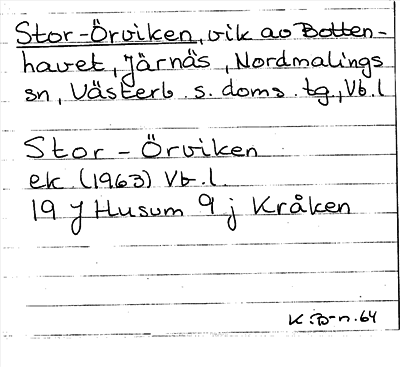 Stor-Örviken, vik av Botten-
havet, Järnäs, Nordmalings
sn, Västerb. s. doms. tg., Vb.l
Stor-Örviken
ek (1963) Vb.l.
19 J Husum 9 j Kråken
K.B-n.64